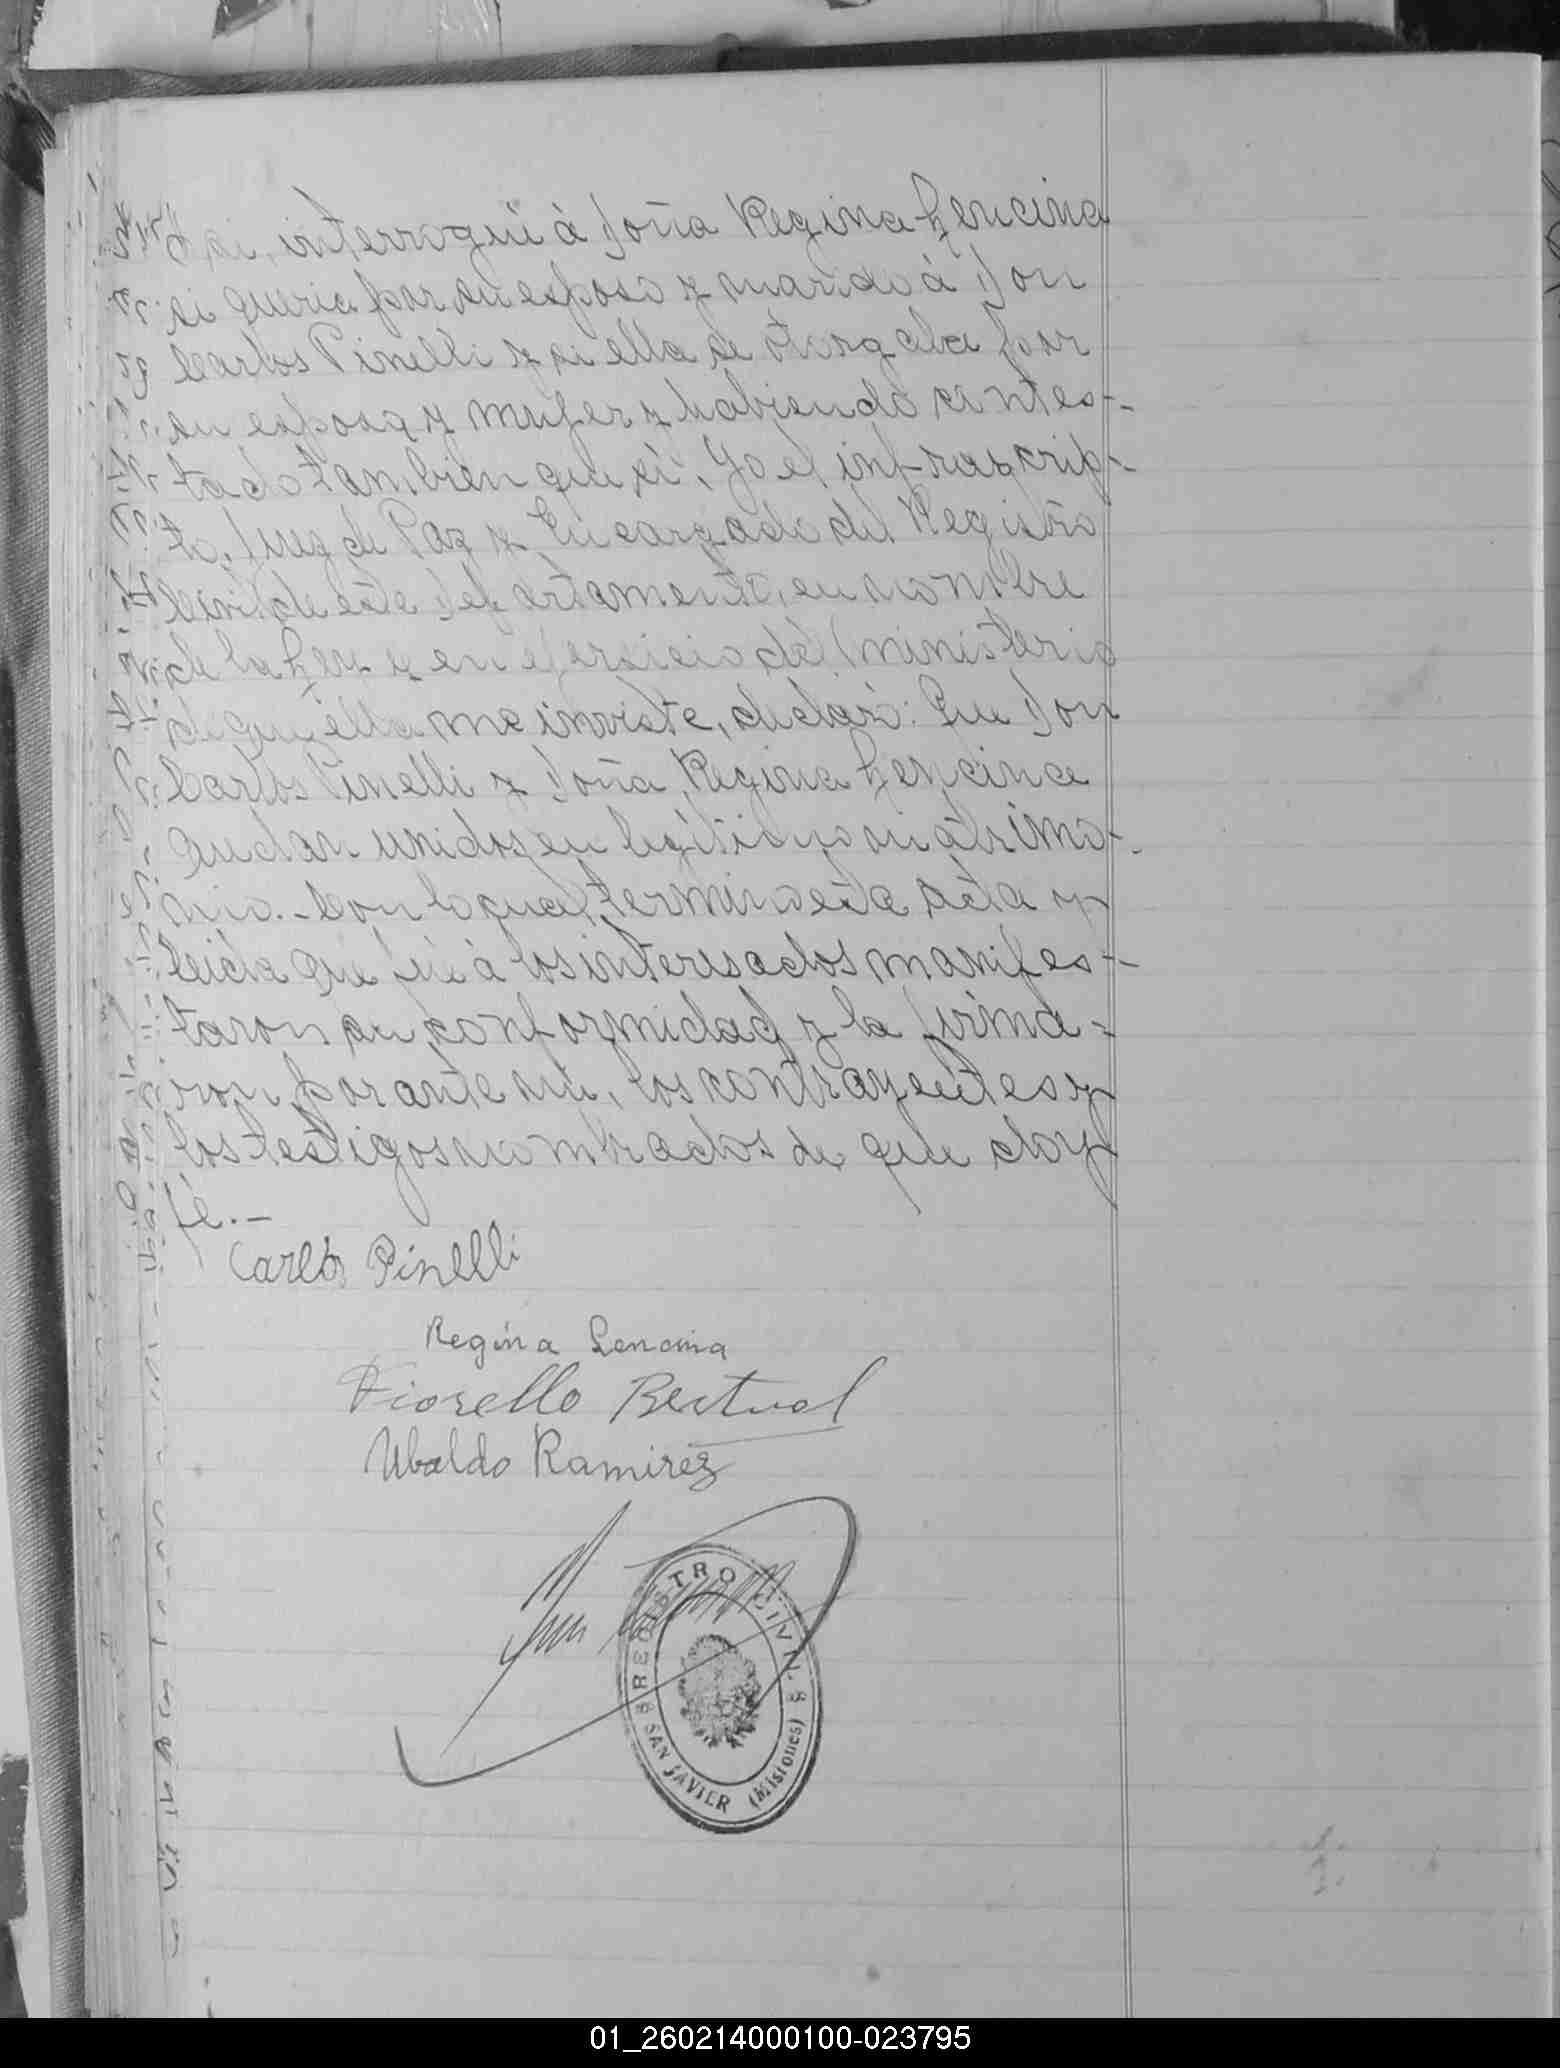 si, interrogué á Doña Regina Lencina
si queria por su esposo y marido á Don
Carlos Pinelli y si ella se otorgaba por
su esposa y mujer y habiendo contes-
tado tambien que si, Yo el infrascrip-
to, Juez de Paz y Encargado del Registro
Civil de este Departamento, en nombre
de la Ley y en ejersicio del ministerio
de que ella me inviste, declaro: Que Don
Carlos Pinelli y Doña Regina Lencina
quedan unidos en legítimo matrimo-
nio.- Con lo qual termino esta acta y
leida que fué á los interesados manifes-
taron su conformidad y la firma-
ron por ante mi, los contrayentes y
los testigos nombrados de que doy
fé.-
Carlos Pinelli
Regina Lencina
Fiorello Bertual
Ubaldo Ramirez
REGISTRO CIVIL
SAN JAVIER (Misiones)
01_260214000100-023795